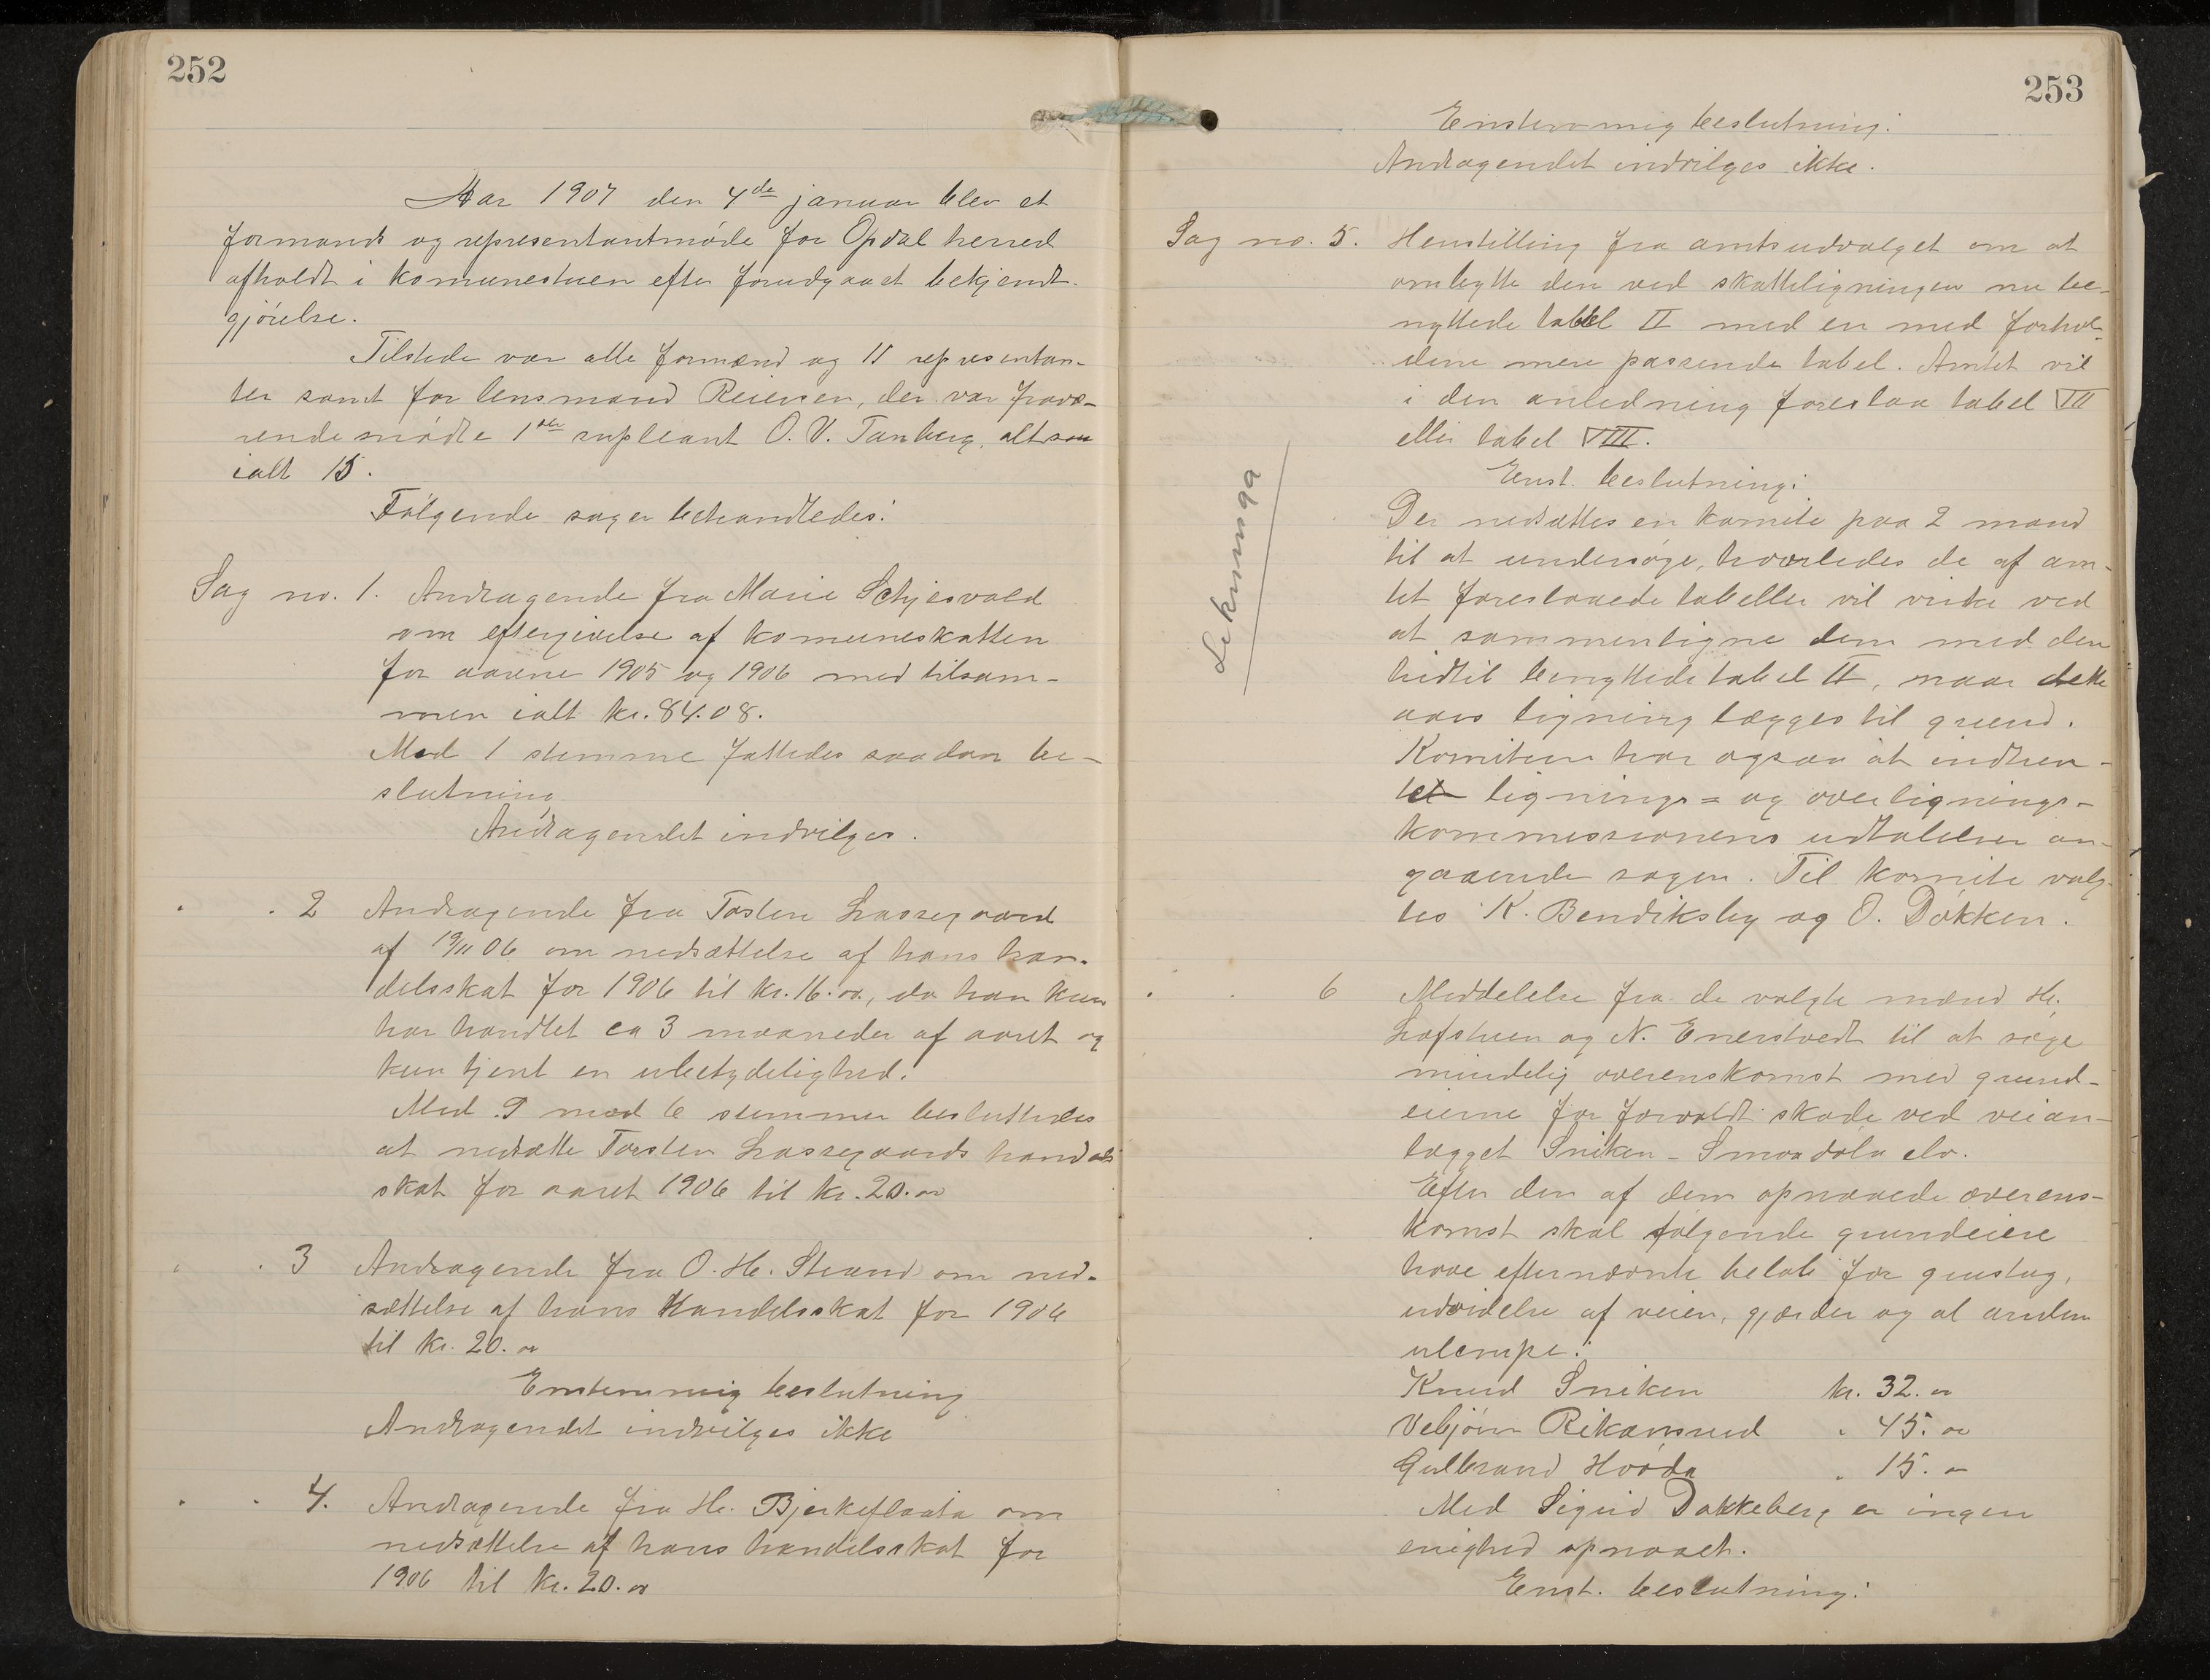 252
Aar 1907 den 4de januar blev et
formands og representantmøde for Opdal herred
afholdt i komunestuen efter forudgaaet bekjendt-
gjørelse.
Tilstede var alle formænd og 11 representan-
ter samt for lensmand Reiersen, der var fravæ-
rende mødte 1ste supleant O. V. Tanberg, altsaa
ialt 15.
Følgende sager behandledes:
Sag no. 1. Andragende fra Marie Schjesvald
om eftergivelse af komuneskatten
for aarene 1905 og 1906 med tilsam-
men ialt kr. 84.08.
Mod 1 stemme fattedes saadan be-
slutning
Andragendet indvilges.
" " 2 Andragende fra Tosten Lassegaard
af 19/11 06 om nedsættelse af hans han-
delsskat for 1906 til kr. 16.00, da han kun
har handlet ca 3 maaneder af aaret og
kun tjent en ubetydelighed.
Med 9 mod 6 stemmer besluttedes
at nedsætte Torsten Lassegaards handels
skat for aaret 1906 til kr. 20.00
" " 3 Andragende fra O. H. Strand om ned-
sættelse af hans Handelsskat for 1906
til kr. 20.00
Enstemmig beslutning
Andragendet indvilges ikke
" " 4. Andragende fra H. Bjerkeflaata om
nedsættelse af hans handelsskat for
1906 til kr. 20.00
253
Enstemmig beslutning:
Andragendet indvilges ikke.
Sag no. 5. Henstilling fra amtsudvalget om at
ombytte den ved skatteligningen nu be-
nyttede tabel II med en med forhol-
dene mere passende tabel. Amtet vil
i den anledning foreslaa tabel VII
eller tabel VIII.
Enst. beslutning:
Der nedsættes en komite paa 2 mand
til at undersøge, hvorledes de af am-
tet foreslaaede tabeller vil virke ved
at sammenligne dem med den
hidtil benyttede tabel II, naar dette
aars ligning lægges til grund.
Komiteen har ogsaa at indhen-
te lignings= og overlignings-
kommissionens udtalelser an-
gaaende sagen. Til komite valg-
tes K. Bendiksby og O. Døkken.
" " 6 Meddelelse fra de valgte mænd H.
Lofstuen og N. Enerstvedt til at søge
mindelig overenskomst med grund-
eierne for forvoldt skade ved veian-
lægget Sniken - Smaadøla elv.
Efter den af dem opnaaede overens-
komst skal følgende grundeiere
have efternævnte beløb for grustag,
udvidelse af veien, gjærder og al anden
ulempe:
Knud Sniken kr. 32.00
Vebjørn Rikansrud " 45.00
Gulbrand Hvåda " 15.00
Med Sigrid Dokkeberg er ingen
enighed opnaaet.
Enst. beslutning: